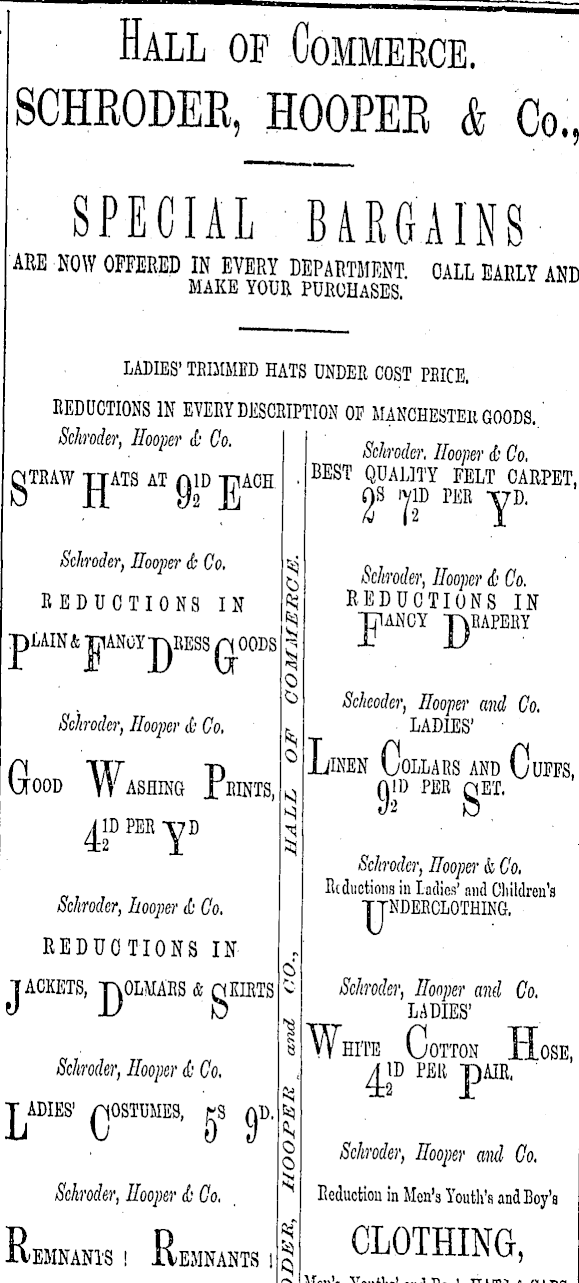 HALL OF COMMERCE.
SCHRODER, HOOPER & Co.,
SPECIAL BARGAINS
ARE NOW OFFERED IN EVERY DEPARTMENT. CALL EARLY AND
MAKE YOUR PURCHASES.
LADIES' TRIMMED HATS UNDER COST PRICE.
REDUCTIONS IN EVERY DESCRIPTION OF MANCHESTER GOODS.
Schroder, Hooper & Co.
STRAW HATS AT 9½D EACH
Schroder, Hooper & Co.
REDUCTIONS IN
PLAIN & FANCY DRESS GOODS
Schroder, Hooper & Co.
GOOD WASHING PRINTS,
4½D PER YD
Schroder, Hooper & Co.
REDUCTIONS IN
JACKETS, DOLMARS & SKIRTS
Schroder, Hooper & Co.
LADIES' COSTUMES, 5S 9D.
Schroder, Hooper & Co.
REMNANTS ! REMNANTS !
DER, HOOPER and CO., HALL OF COMMERCE.
Schroder. Hooper & Co.
BEST QUALITY FELT CARPET,
2S 7½D PER YD.
Schroder, Hooper & Co.
REDUCTIONS IN
FANCY DRAPERY
Scheoder, Hooper and Co.
LADIES'
LINEN COLLARS AND CUFFS,
9½D PER SET.
Schroder, Hooper & Co.
Reductions in Ladies' and Children's
UNDERCLOTHING.
Schroder, Hooper and Co.
LADIES'
WHITE COTTON HOSE,
4½D PER PAIR.
Schroder, Hooper and Co.
Reduction in Men's Youth's and Boy's
CLOTHING,